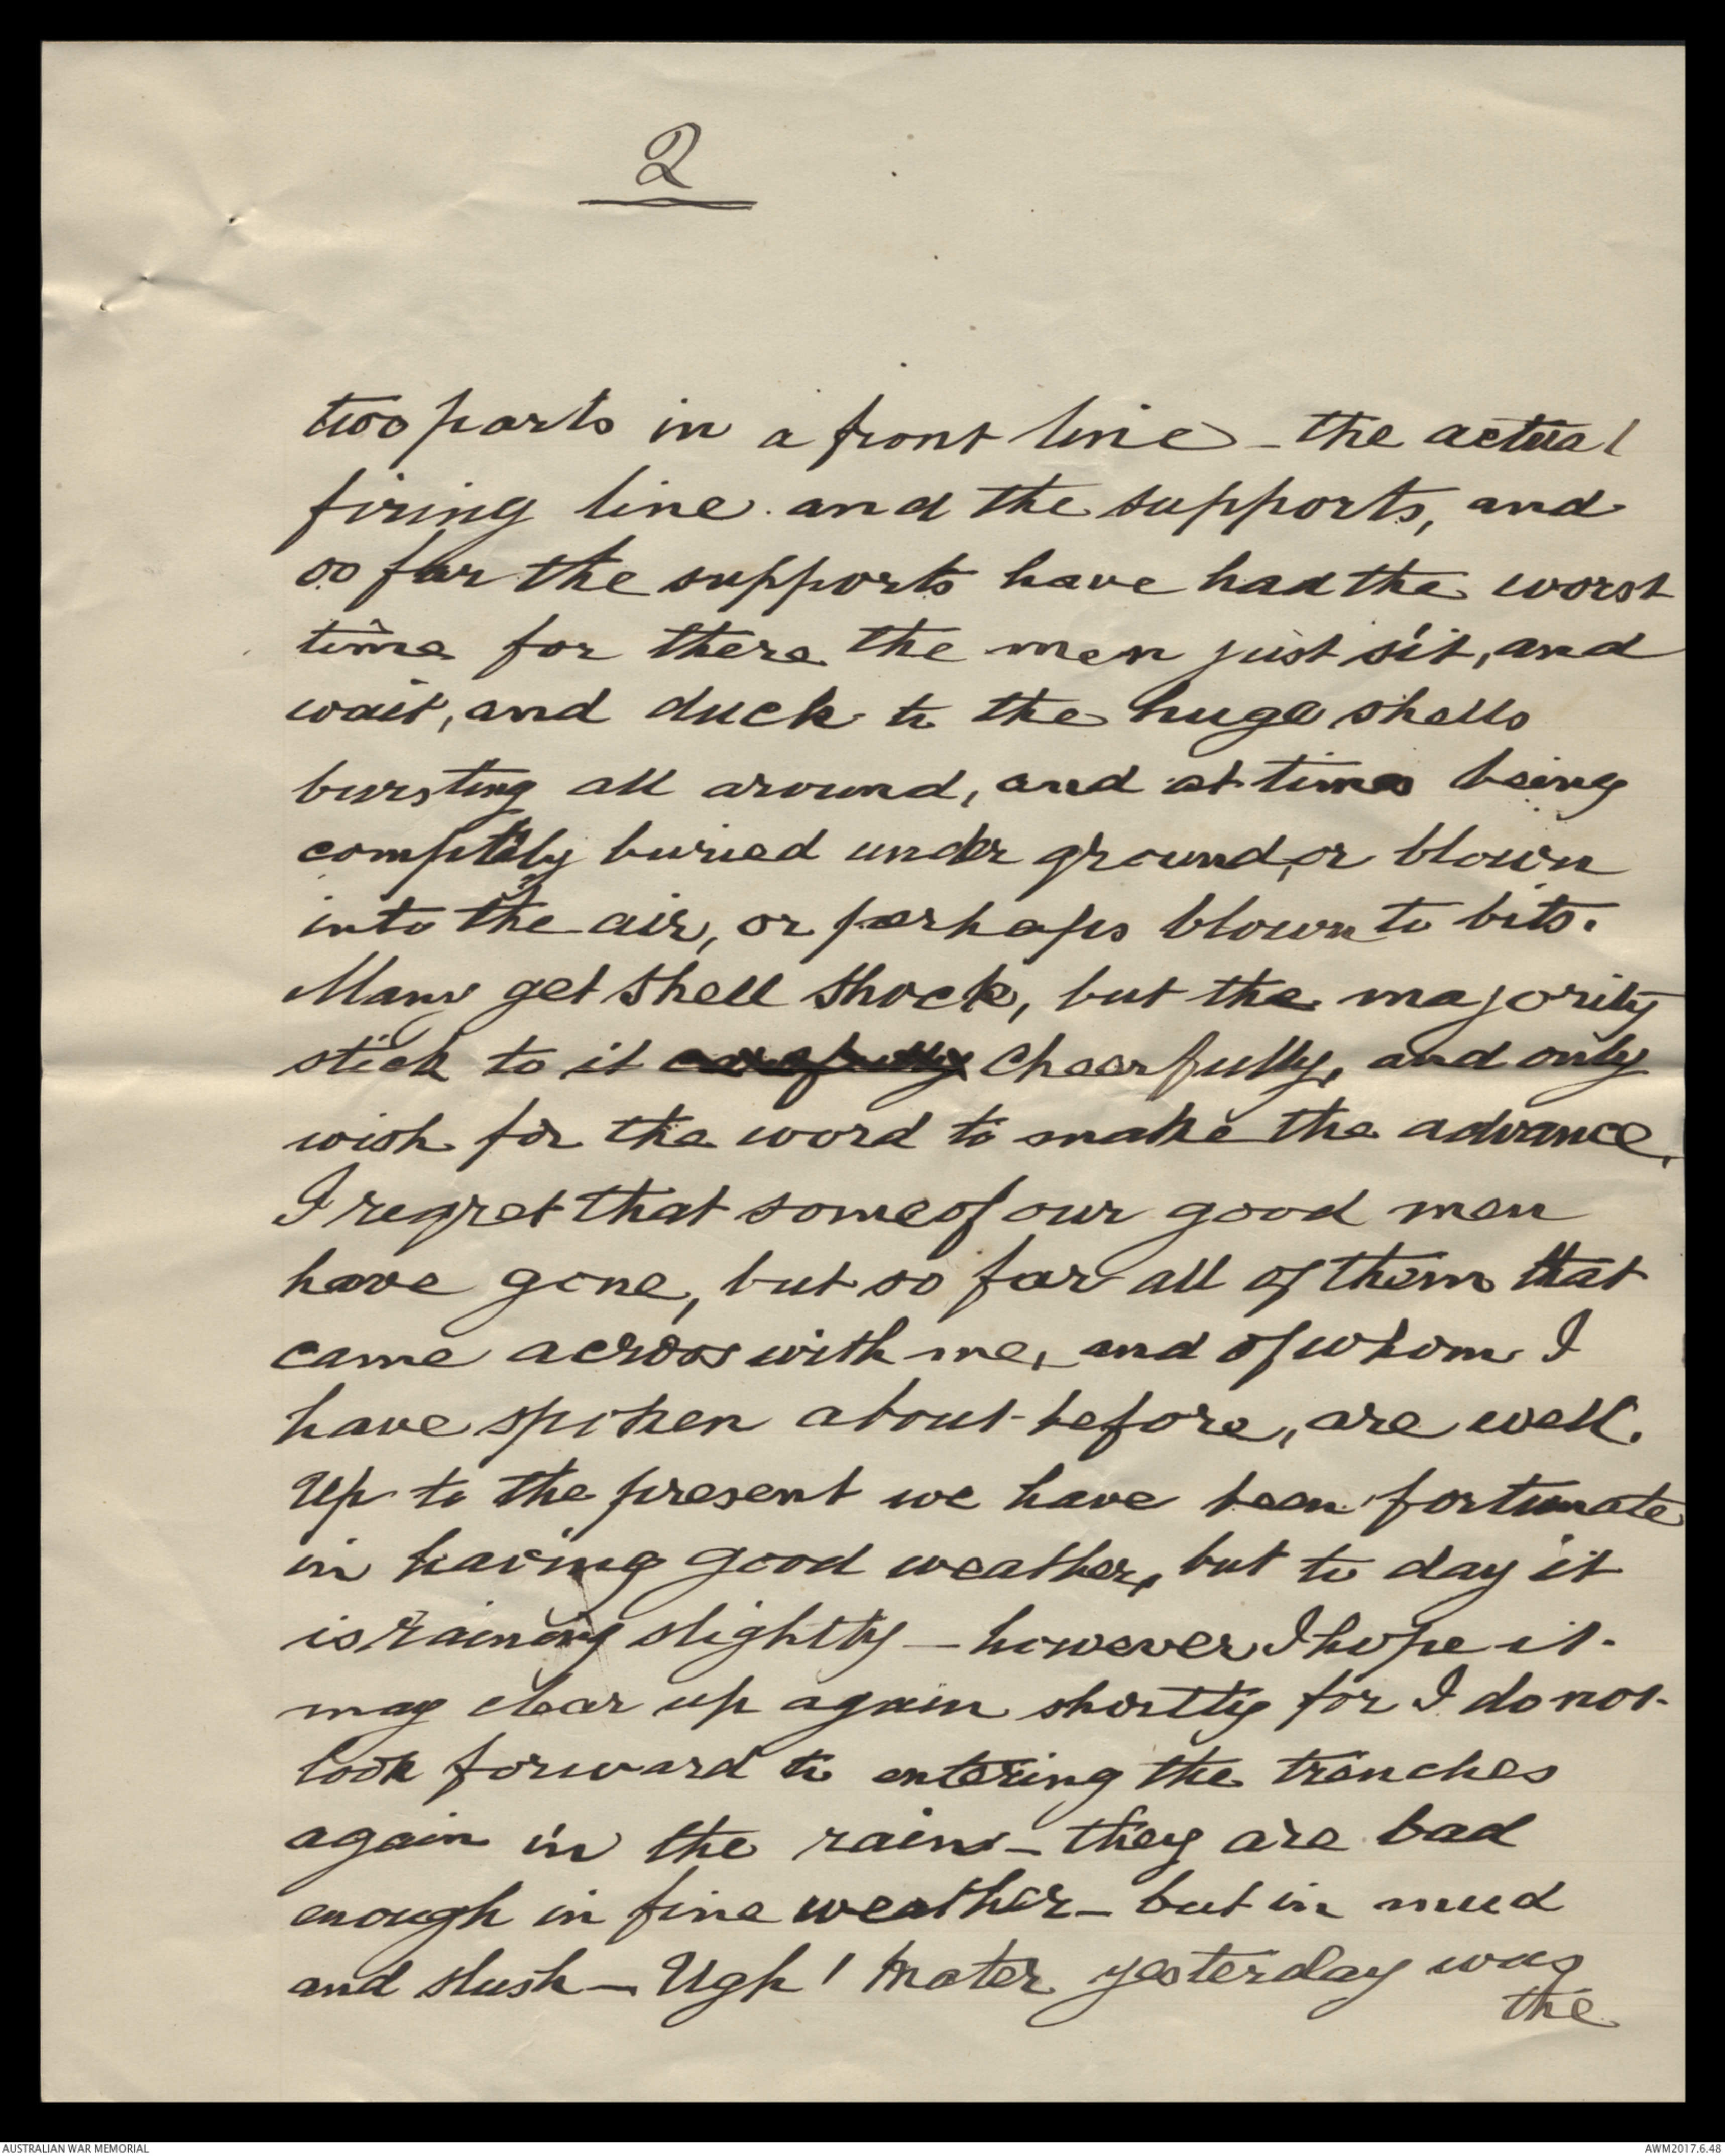 2
two parts in a front line - the actual
firing line and the supports, and
so far the supports have had the worst
time for there the men just sit, and
wait, and duck to the huge shells
bursting all around, and at times being
completely buried under ground, or blown
into the air, or perhaps blown to bits.
Many get shell shock, but the majority
stick to it cheerfully, and only
wish for the word to make the advance.
I regret that some of our good men
have gone, but so far all of them that
came across with me, and of whom I
have spoken about before, are well.
Up to the present we have been fortunate
in having good weather, but to day it
is raining slightly - however I hope it
may clear up again shortly for I do not
look forward to entering the trenches
again in the rain - they are bad
enough in fine weather - but in mud
and slush - Ugh! Mater yesterday was
the
AUSTRALIAN WAR MEMORIAL
AWM2017.6.48